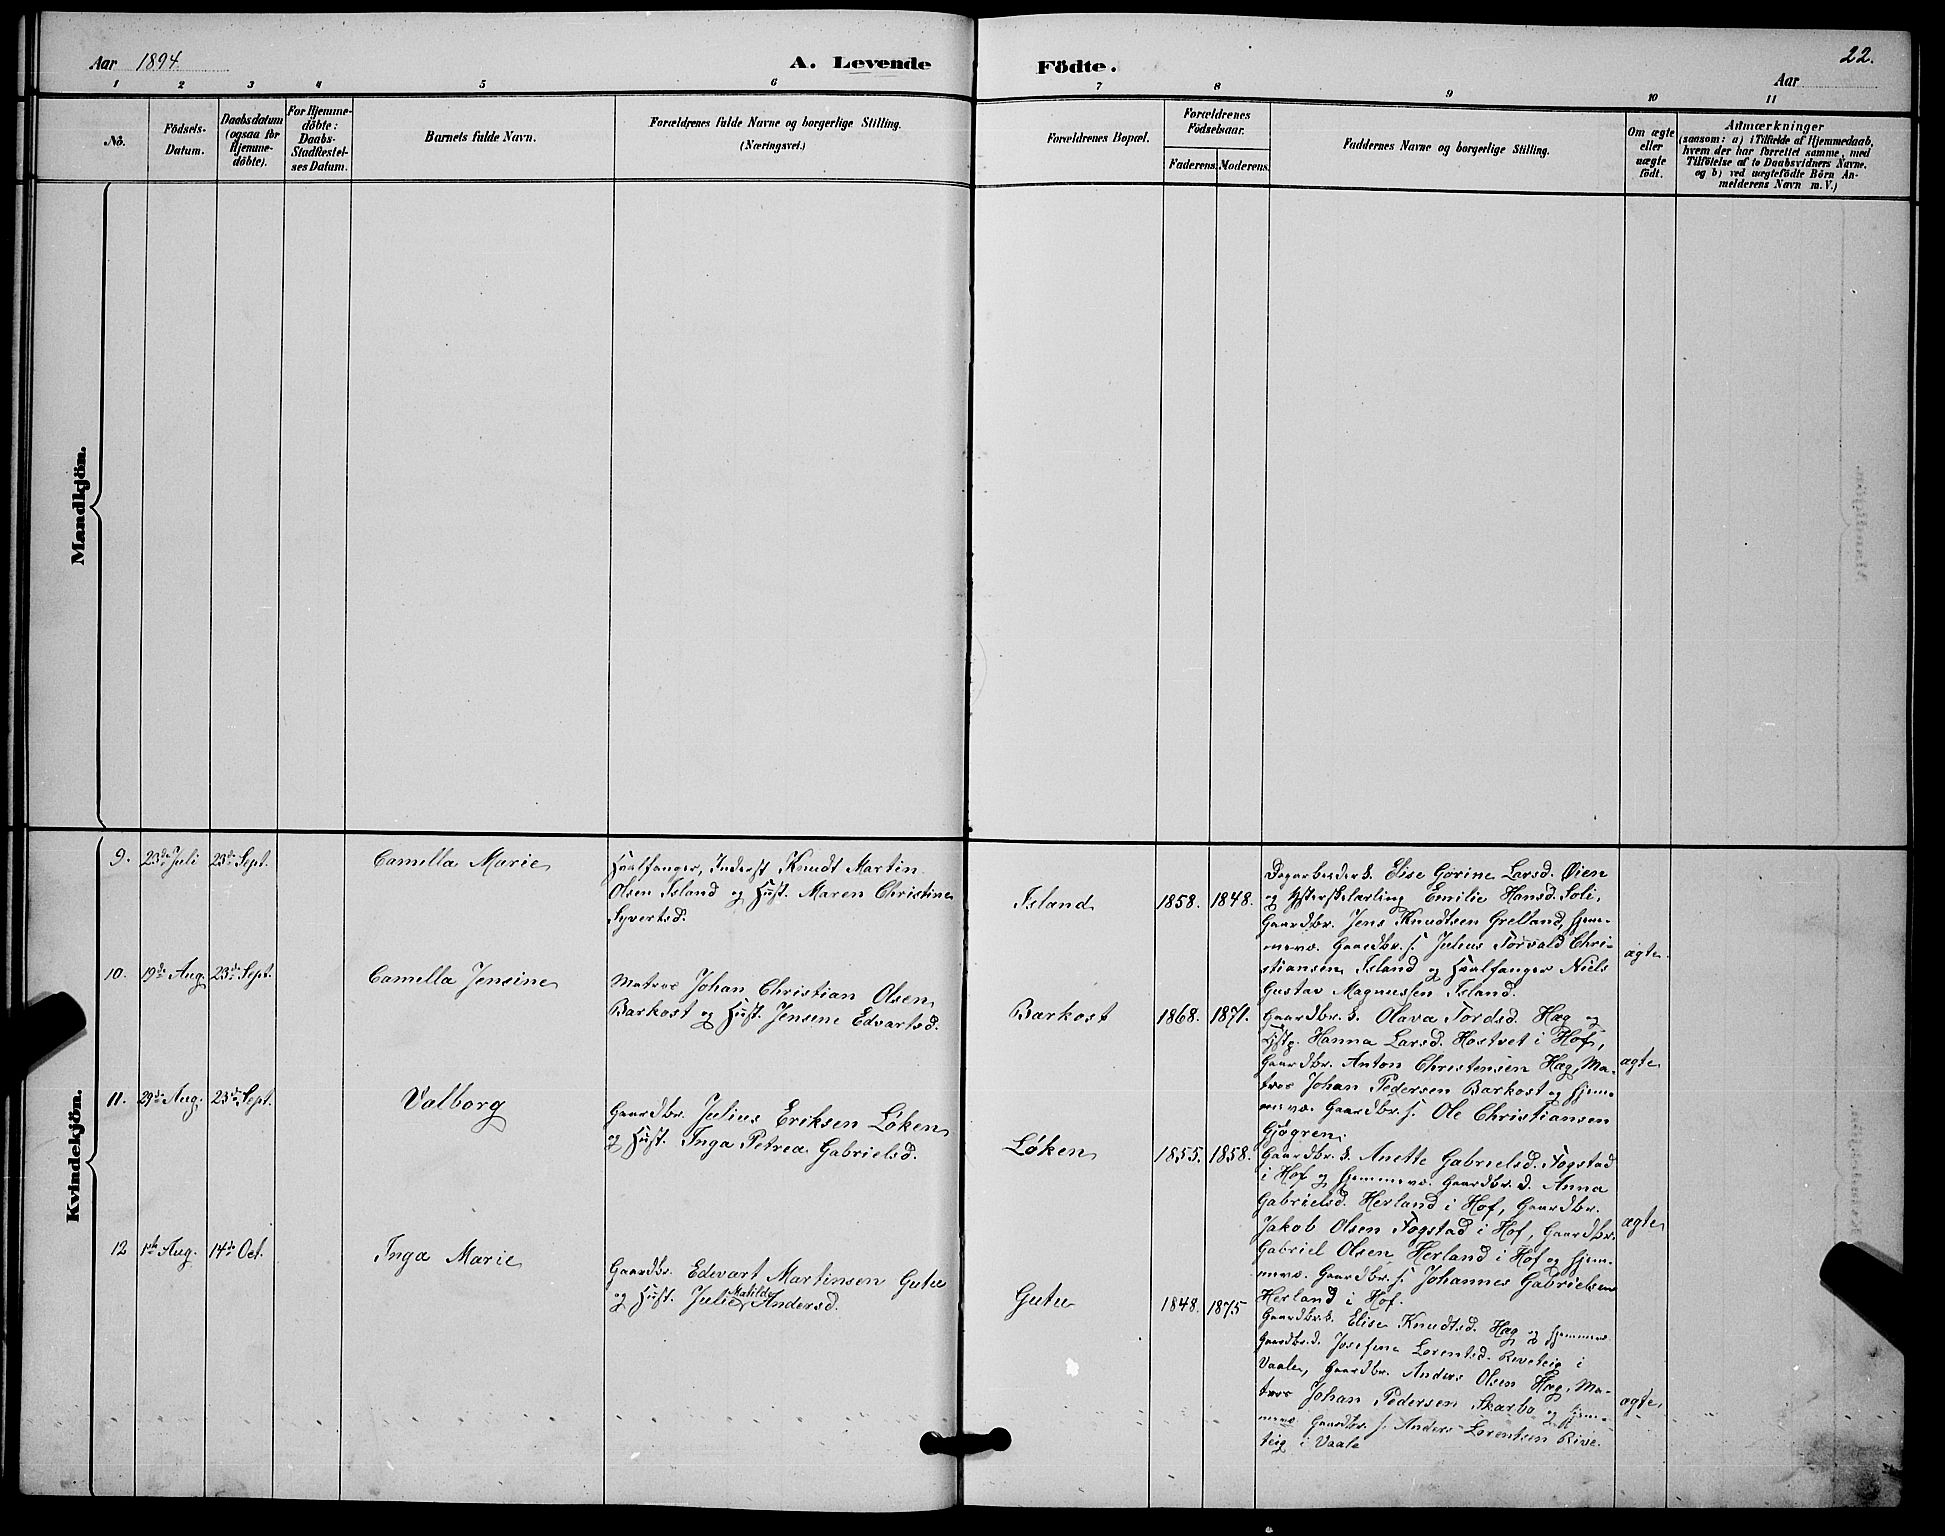 Aar 1894.
A. Levende Födte.
22.
Aar
1 2 3 4 5 6 7 8 9 10 11
No.
Födsels-
Datum.
Daabsdatum
(ogsaa for
Hjemme-
döbte).
For Hjemme-
döbte:
Daabs-
Stadfestel-
ses Datum.
Barnets fulde Navn.
Forældrenes fulde Navne og borgerlige Stilling.
(Næringsvei.)
Forældrenes Bopæl.
Forældrenes
Födselsaar.
Faderens. Moderens.
Faddernes Navne og borgerlige Stilling.
Om ægte
eller
uægte
födt.
Anmærkninger
(saasom: a) i Tilfælde af Hjemmedaab,
hvem der har forrettet samme, med
Tilföielse af to Daabsvidners Navne,
og b) ved uægtefödte Börn An-
melderens Navn m.V.)
Mandkjön.
Kvindekjön.
9. 23de Juli 23de Sept. Camella Marie
Hvalfanger, Inderst Knudt Martin
Olsen Island og Hust. Maren Christine
Syvertsd.
Island 1858. 1848.
Dagarbeider S. Elise Gorine Larsd. Øien
og Emilie Hansd. Soli,
Gaardbr. Jens Knudtsen Grelland, Hjem-
mevæ. Gaardbr. s. Julius Torvald Chri-
stiansen Island og Hvalfanger Niels
Gustav Magnussen Island.
ægte
10. 19de Aug. 23de Sept. Camella Jensine
Matros Johan Christian Olsen
Barkost og Hust. Jensine Edvartsd.
Barkost 1868. 1871.
Gaardbr. S. Olava Tordsd. Hæg og
Hanna Larsd. Hostvet i Hof,
Gaardbr. Anton Christensen Hæg, Ma-
tros Johan Pedersen Barkost og Hjem-
mevæ. Gaardbr. s. Ole Christiansen
Gjøgren.
ægte
11. 29de Aug. 23de Sept. Valborg
Gaardbr. Julius Eriksen Løken
og Hust. Inga Petrea Gabrielsd.
Løken 1855. 1858.
Gaardbr. S. Anette Gabrielsd. Fogstad
i Hof og Hjemmevæ. Gaardbr. d. Anna
Gabrielsd. Herland i Hof, Gaardbr.
Jakob Olsen Fogstad i Hof, Gaardbr.
Gabriel Olsen Herland i Hof og Hjem-
mevæ. Gaardbr. s. Johannes Gabrielsen
Herland i Hof.
ægte
12 1ste Aug. 14de Oct. Inga Marie
Gaardbr. Edevart Martinsen Gutu
og Hust. Julie Matilde Andersd.
Gutu 1848. 1875
Gaardbr. S. Elise Knudtsd. Hæg og Hjemmevæ
Gaardbr. d. Josefine Lorentsd. Riveteig i
Vaale, Gaardbr. Anders Olsen Hæg, Ma-
tros Johan Pedersen Skarbo og Hjem-
mevæ. Gaardbr. s. Anders Lorentsen Rive-
teig i Vaale
ægte